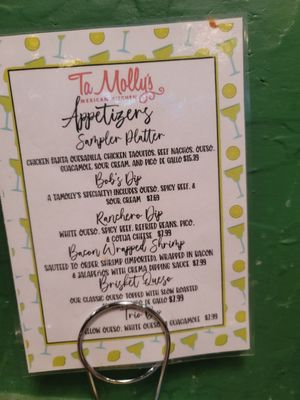 Ta Molly's
MEXICAN KITCHEN
Appetizers
Sampler Platter
CHICKEN FAJITA QUESADILLA, CHICKEN TAQUITOS, BEEF NACHOS, QUESO,
GUACAMOLE, SOUR CREAM, AND PICO DE GALLO $15.99
Bob's Dip
A TAMOLLY'S SPECIALTY! INCLUDES QUESO, SPICY BEEF, &
SOUR CREAM $7.69
Ranchero Dip
WHITE QUESO, SPICY BEEF, REFRIED BEANS, PICO,
& COTIJA CHEESE $7.99
Bacon Wrapped Shrimp
SAUTEED TO ORDER SHRIMP (IMPORTED), WRAPPED IN BACON
& JALAPEÑOS WITH CREMA DIPPING SAUCE $7.99
Brisket Queso
OUR CLASSIC QUESO TOPPED WITH SLOW ROASTED
DE GALLO $7.99
Trio
YELLOW QUESO, WHITE QUESO & GUACAMOLE $7.99